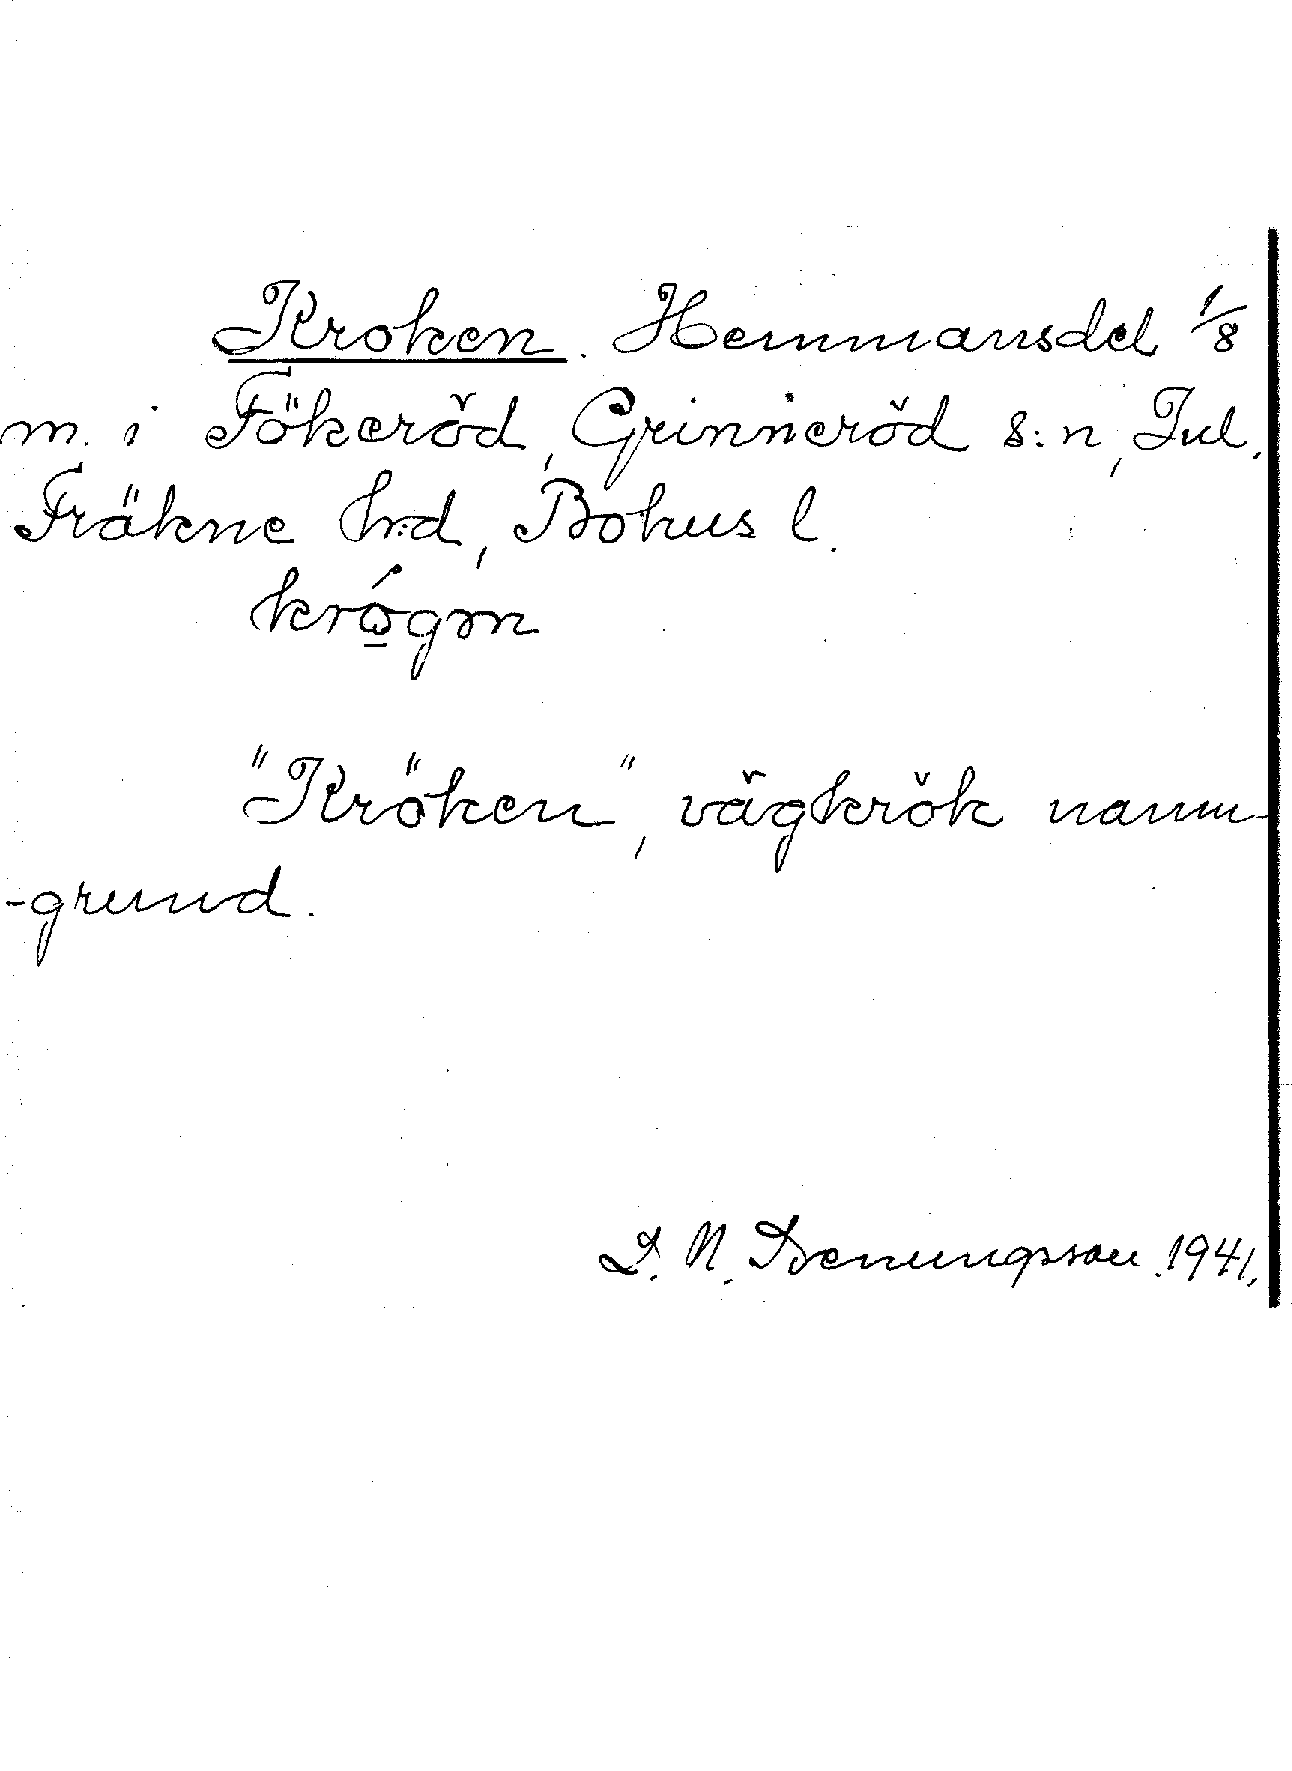 Kroken. Hemmansdel 1/8
m. i Fökeröd, Grinneröd s:n, Inl.
Fräkne h:d, Bohus l.
krógm
"Kröken", vägkrök namn-
-grund.
D. N. 1941.